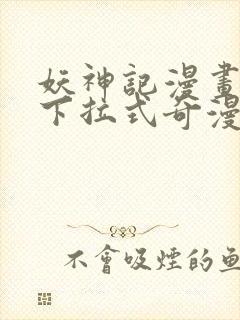 妖神記漫畫
下拉式奇漫
不會吸煙的魚